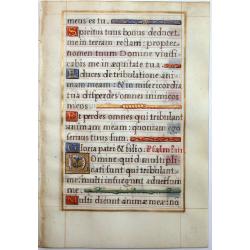 meus es tu.
Spiritus tuus bonus deducet
me in terram rectam: propter
nomen tuum Domine vivifi
cabis me in æquitate tua.
Educes de tribulatione ani
mam meam: & in misericordia
tua disperdes omnes inimicos
meos.
Et perdes omnes qui tribulant
animam meam: quoniam ego
servus tuus sum.
Gloria patri & filio. Psalmus
Domine quid multipli
cati sunt qui tribulant
me: multi insurgunt adversum
me.
Multi dicunt animæ meæ: no